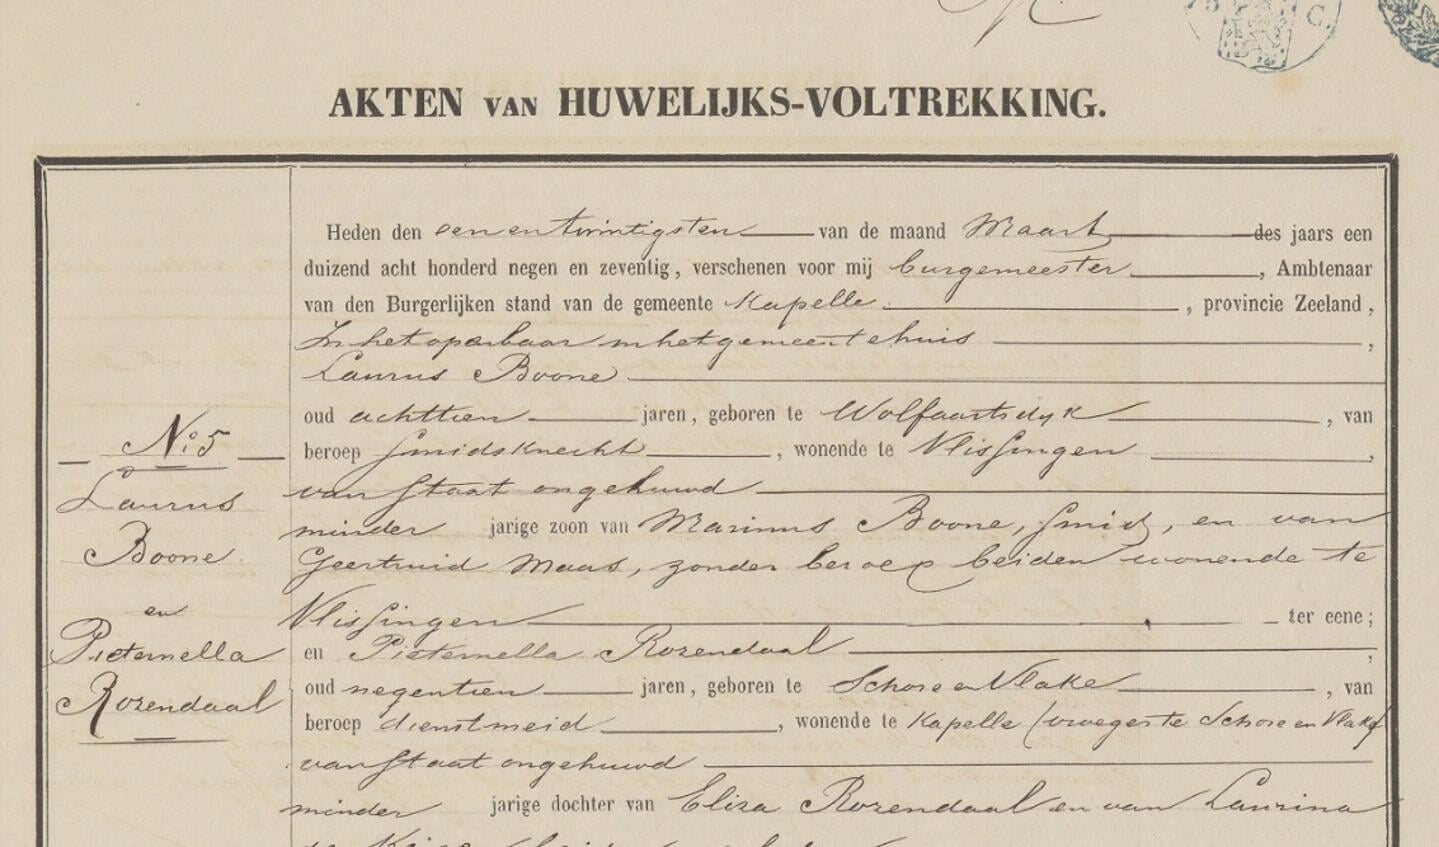 AKTEN VAN HUWELIJKS-VOLTREKKING.
Heden den een en twintigsten van de maand Maart des jaars een
duizend acht honderd negen en zeventig, verschenen voor mij burgemeester, Ambtenaar
van den Burgerlijken stand van de gemeente Kapelle, provincie Zeeland,
In het openbaar in het gemeentehuis,
Laurus Boone
oud achttien jaren, geboren te Wolfaartsdyk, van
beroep smidsknecht, wonende te Vlissingen,
van staat ongehuwd
minder jarige zoon van Marinus Boone, smid, en van
Geertruid Maas, zonder beroep beiden wonende te
Vlissingen ter eene;
en Pieternella Rozendaal,
oud negentien jaren, geboren te Schore en Vlake, van
beroep dienstmeid, wonende te Kapelle (vroeger te Schore en Vlake)
van staat ongehuwd
minder jarige dochter van Eliza Rozendaal en van Laurina
No. 5
Laurus
Boone
en
Pieternella
Rozendaal